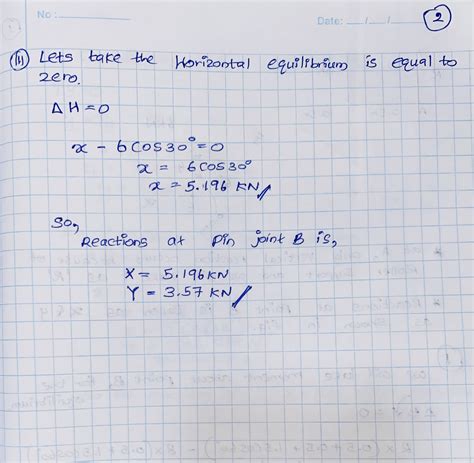 No :
Date: / /
2
(iii) Lets take the Horizontal equilibrium is equal to
zero.
Δ H = 0
x - 6 cos 30° = 0
x = 6 cos 30°
x = 5.196 KN
So,
Reactions at Pin joint B is,
X = 5.196 KN
Y = 3.57 KN